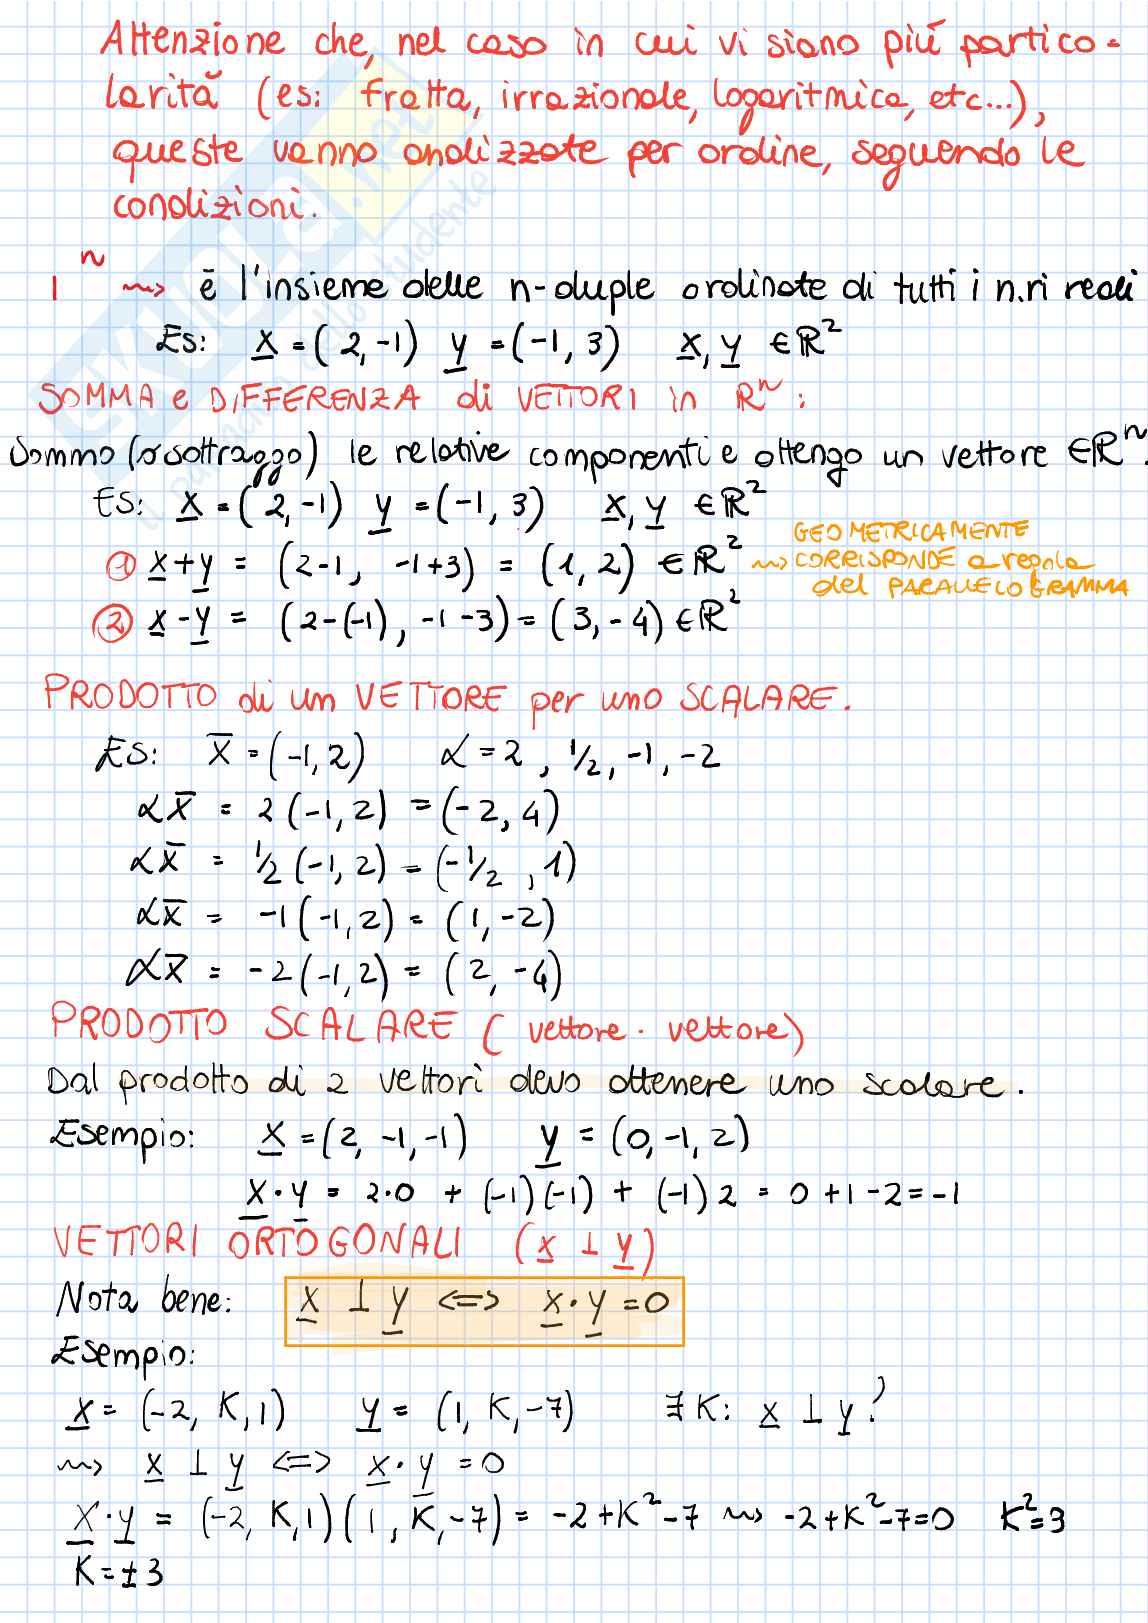 Attenzione che, nel caso in cui vi siano più partico-
larità (es: fratta, irrazionale, logaritmica, etc...),
queste vanno analizzate per ordine, seguendo le
condizioni.
I^n ⇝ è l'insieme delle n-duple ordinate di tutti i n.ri reali
Es: x = (2, -1) y = (-1, 3) x, y ∈ ℝ²
SOMMA e DIFFERENZA di VETTORI in R^n:
Sommo (o sottraggo) le relative componenti e ottengo un vettore ∈ ℝ^n.
ES: x = (2, -1) y = (-1, 3) x, y ∈ ℝ²
① x+y = (2-1, -1+3) = (1, 2) ∈ ℝ² ⇝ GEOMETRICAMENTE
CORRISPONDE a regola
del PARALLELOGRAMMA
② x-y = (2-(-1), -1-3) = (3, -4) ∈ ℝ²
PRODOTTO di un VETTORE per uno SCALARE.
ES: x̅ = (-1, 2) α = 2, 1/2, -1, -2
αx̅ = 2(-1, 2) = (-2, 4)
αx̅ = 1/2(-1, 2) = (-1/2, 1)
αx̅ = -1(-1, 2) = (1, -2)
αx̅ = -2(-1, 2) = (2, -4)
PRODOTTO SCALARE (vettore · vettore)
Dal prodotto di 2 vettori devo ottenere uno scalare.
Esempio: x = (2, -1, -1) y = (0, -1, 2)
x·y = 2·0 + (-1)(-1) + (-1)2 = 0+1-2 = -1
VETTORI ORTOGONALI (x ⊥ y)
Nota bene: x ⊥ y ⇔ x·y = 0
Esempio:
x = (-2, K, 1) y = (1, K, -7) ∃ K: x ⊥ y?
⇝ x ⊥ y ⇔ x·y = 0
x·y = (-2, K, 1)(1, K, -7) = -2+K²-7 ⇝ -2+K²-7=0 K²=3
K = ±3
SKUOLA.net
il paradiso dello studente